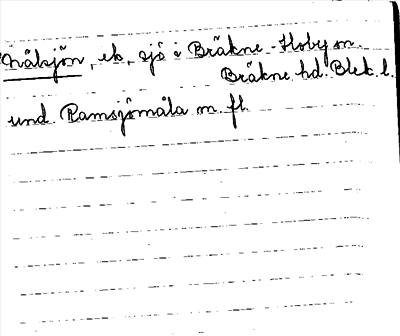 Nålsjön, ek, sjö i Bräkne-Hoby sn.
Bräkne hd. Blek. l.
und. Ramsjömåla m. fl.